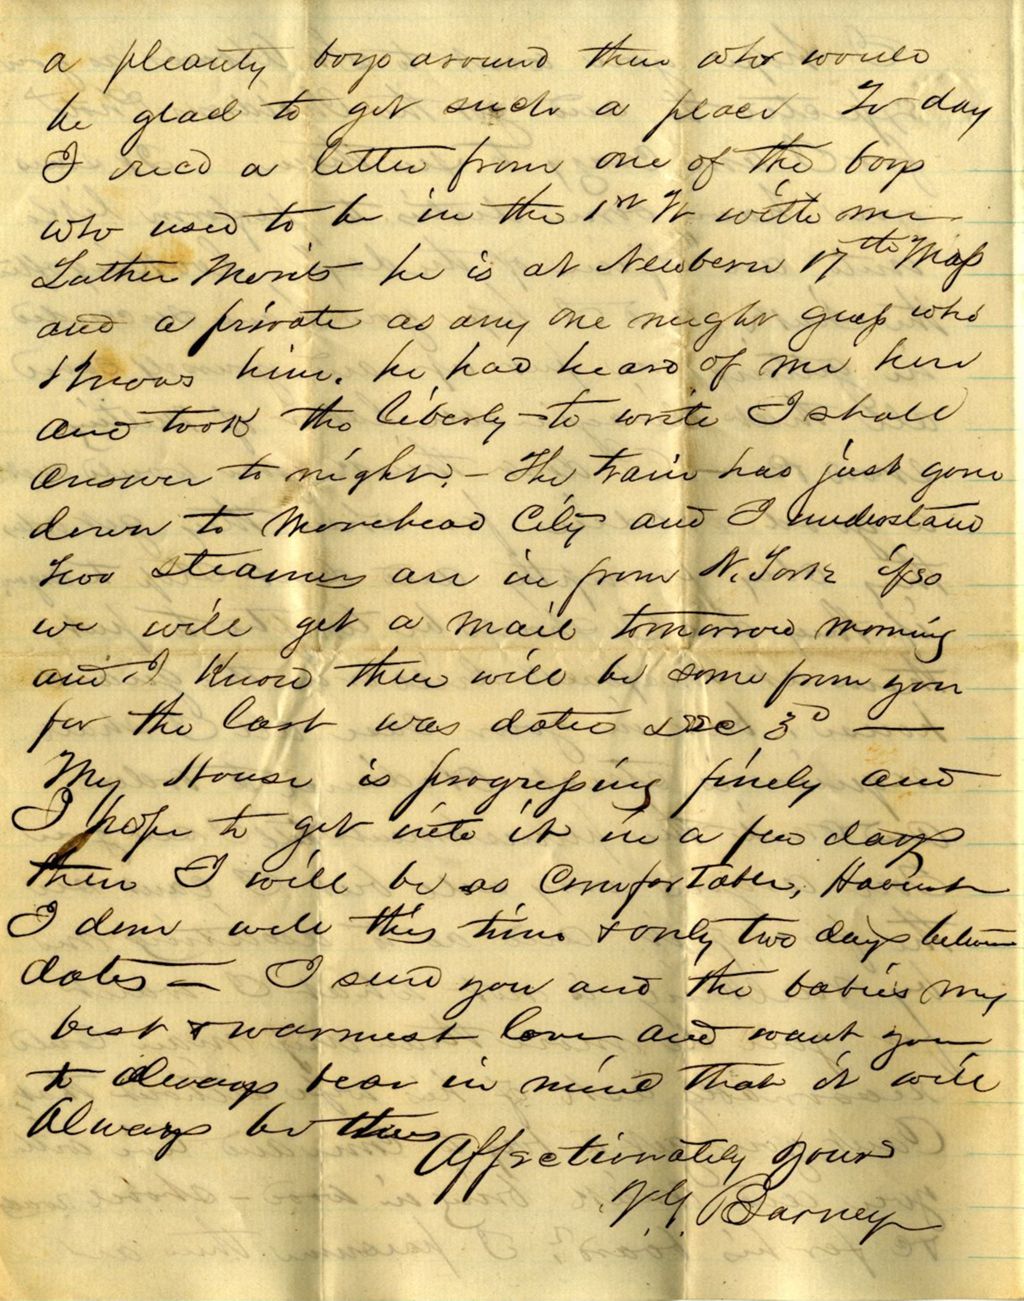 a pleanty boys around there who would
be glad to get such a place To day
I recd a letter from one of the boys
who used to be in the 1st Vt with me
Luther Morris he is at Newbern 17th Mass
and a private as any one might guess who
Knows him. he had heard of me here
and took the liberty to write I shall
answer to night. – The train has just gone
down to Morehead City and I understand
two steamers are in from N. York if so
we will get a mail tomorrow morning
and I Know there will be some from you
for the last was dated Dec 3d —
My House is progressing finely and
I hope to get into it in a few days
then I will be so Comfortable, Havent
I done well this time & only two days between
dates — I send you and the babies my
best & warmest love and want you
to always bear in mind that it will
Always be thus
Affectionately yours
V G Barney